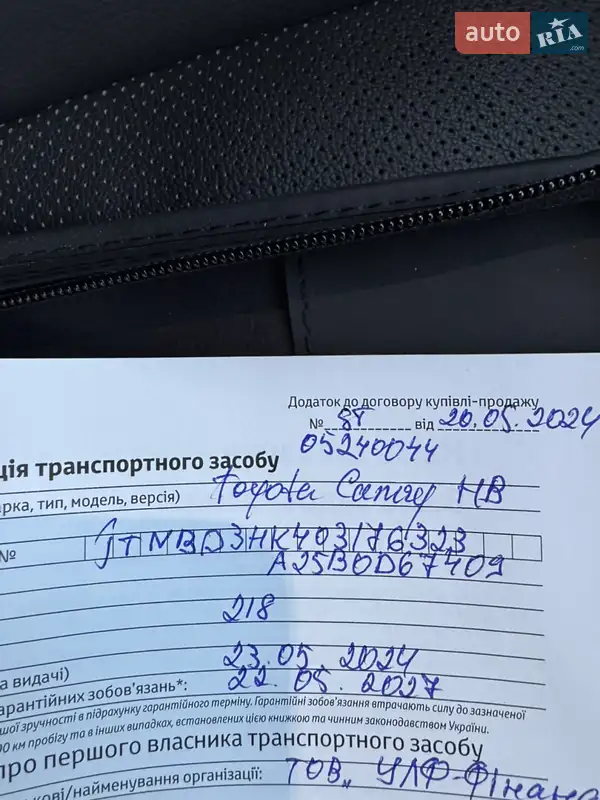 auto RIA .com
Додаток до договору купівлі-продажу
№ ST від 20.05.2024
05240044
ція транспортного засобу
арка, тип, модель, версія) Toyota Camry HB
№ JTMBD3HK403176323
A25B0D67409
218
23.05.2024
а видачі)
арантійних зобов'язань*: 22.05.2027
шої зручності в підрахунку гарантійного терміну. Гарантійні зобов'язання втрачають силу до зазначеної
00 км пробігу та в інших випадках, встановлених цією книжкою та чинним законодавством України.
про першого власника транспортного засобу
кові/найменування організації: ТОВ „УЛФ-Фінанс